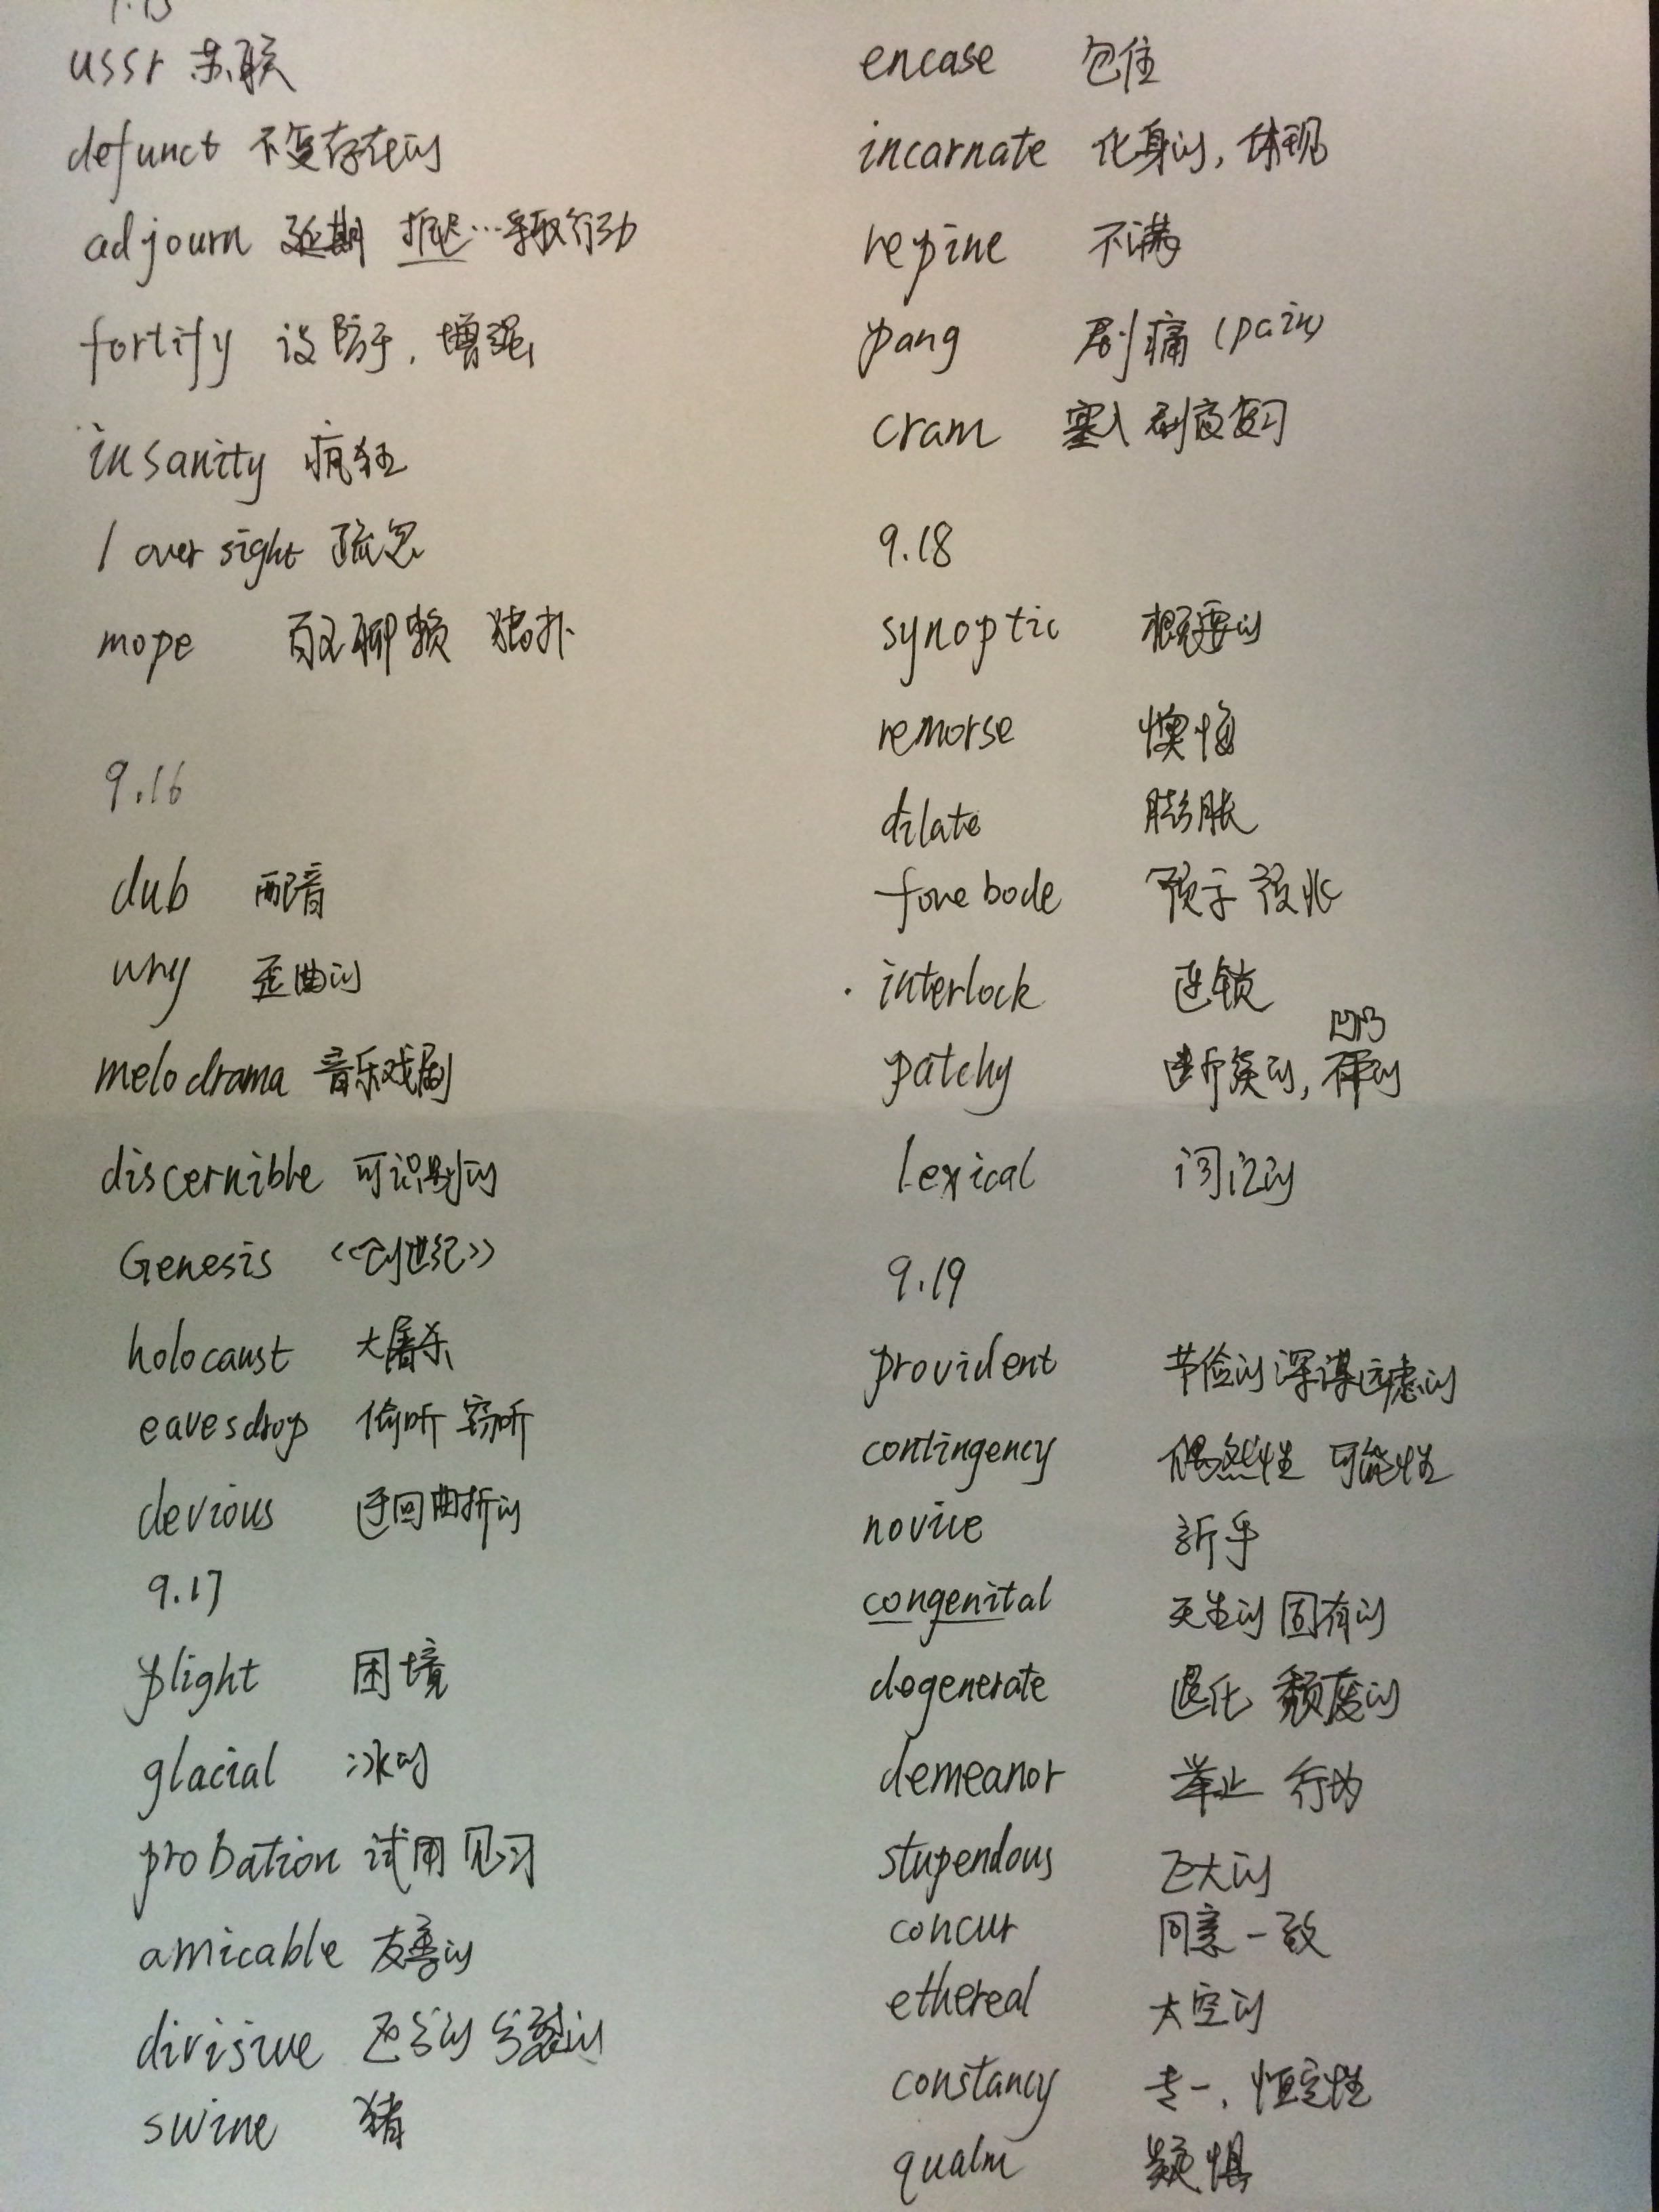 ussr 苏联
defunct 不复存在的
adjourn 延期 推迟…采取行动
fortify 设防于,增强
insanity 疯狂
oversight 疏忽
mope 百无聊赖
9.16
dub 配音
wry 歪曲的
melodrama 音乐戏剧
discernible 可识别的
Genesis 《创世纪》
holocaust 大屠杀
eavesdrop 偷听 窃听
devious 迂回曲折的
9.17
plight 困境
glacial 冰的
probation 试用 见习
amicable 友善的
divisive 区分的 分裂的
swine 猪
encase 包住
incarnate 化身的,体现
repine 不满
pang 剧痛 (pain)
cram 塞入 刻苦复习
9.18
synoptic 概要的
remorse 懊悔
dilate 膨胀
forebode 预示 预兆
interlock 连锁
patchy 断续的,
lexical 词汇的
9.19
provident 节俭的 深谋远虑的
contingency 偶然性 可能性
novice 新手
congenital 天生的 固有的
degenerate 退化 颓废的
demeanor 举止 行为
stupendous 巨大的
concur 同意 一致
ethereal 太空的
constancy 专一,恒定性
qualm 疑惧